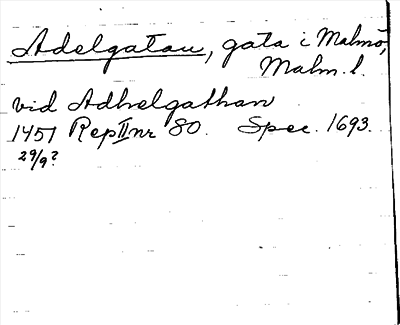 Adelgatan, gata i Malmö,
Malm. l.
vid Adhelgathan
1451 Rep II nr 80. Spec. 1693.
29/9?